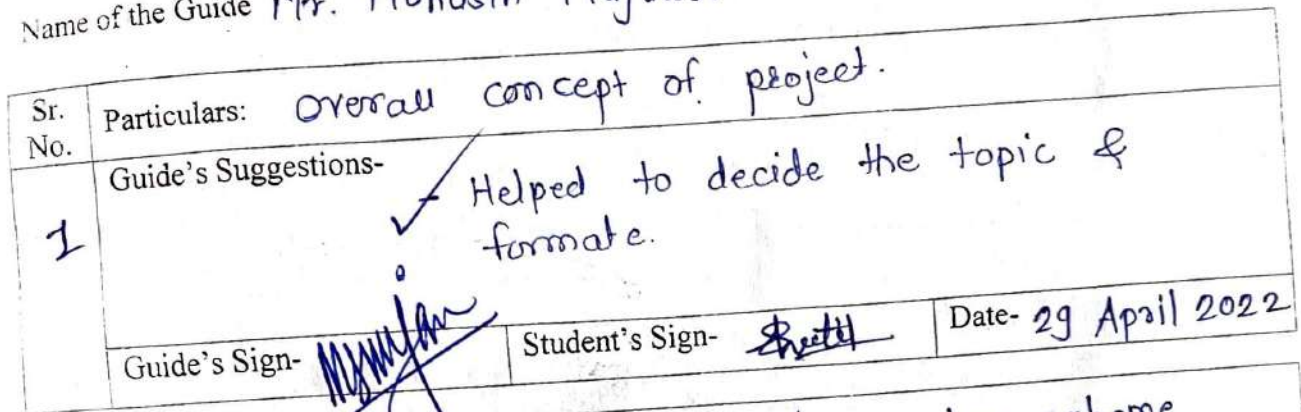 Name of the Guide Mr.
Sr. No.
Particulars: Overall concept of project.
1
Guide's Suggestions-
- Helped to decide the topic &
formate.
Guide's Sign-
Student's Sign-
Date- 29 April 2022